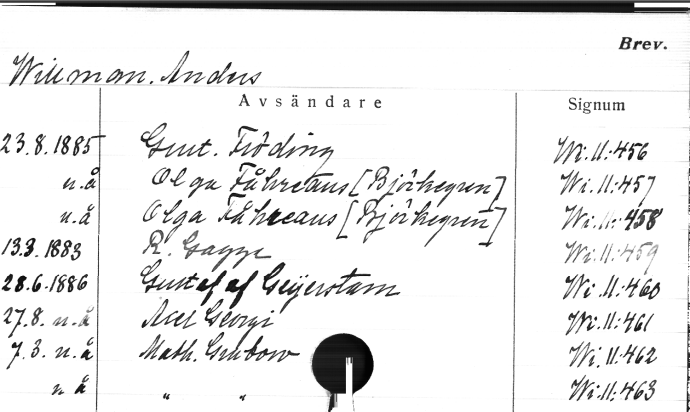 Brev.
Willman. Anders
Avsändare Signum
23.8.1885 Gust. Fröding Wi.II:456
u.å Olga Fåhreaus [Björkegren] Wi.II:457
u.å Olga Fåhreaus [Björkegren] Wi.II:458
13.3.1883 R. Gagge Wi.II:459
28.6.1886 Gustaf af Geijerstam Wi.II:460
27.8. u.å Axel Georgi Wi.II:461
7.3. u.å Math. Grabow Wi.II:462
u å " " Wi.II:463